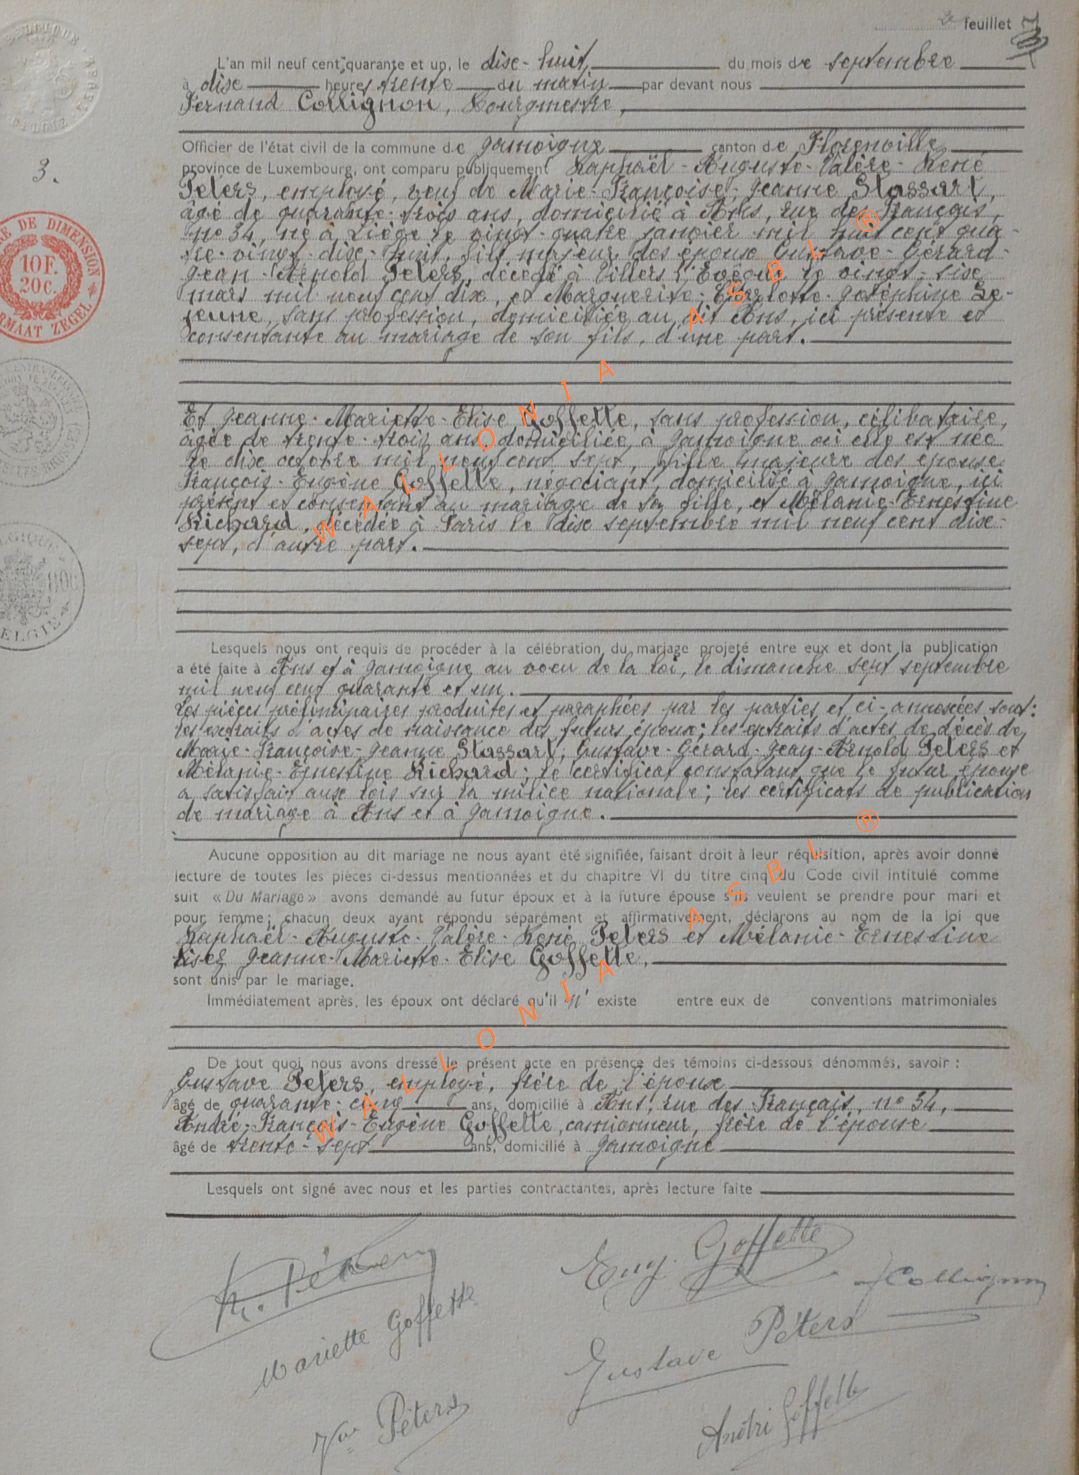 2e feuillet 3
L'an mil neuf cent quarante et un, le dix-huit du mois de septembre
à dix heures trente du matin par devant nous
Fernand Collignon, Bourgmestre,
Officier de l'état civil de la commune de Jamoigne canton de Florenville
3.
province de Luxembourg, ont comparu publiquement Raphaël-Auguste-Valère-René
Peters, employé, veuf de Marie-Françoise-Jeanne Stassart,
âgé de quarante-trois ans, domicilié à Ans, rue des Français,
n° 34, né à Liège le vingt-quatre janvier mil huit cent qua-
tre-vingt-dix-huit, fils majeur des époux Gustave-Gérard-
Jean-Arnold Peters, décédé à Villers l'Evêque le vingt-six
mars mil neuf cent dix, et Marguerite-Charlotte-Joséphine Le-
jeune, sans profession, domiciliée au dit Ans, ici présente et
consentante au mariage de son fils, d'une part.
Et Jeanne-Mariette-Elise Goffette, sans profession, célibataire,
âgée de trente-trois ans, domiciliée à Jamoigne où elle est née
le dix octobre mil neuf cent sept, fille majeure des époux
François-Eugène Goffette, négociant, domicilié à Jamoigne, ici
présent et consentant au mariage de sa fille, et Mélanie-Ernestine
Richard, décédée à Paris le dix septembre mil neuf cent dix-
sept, d'autre part.
Lesquels nous ont requis de procéder à la célébration du mariage projeté entre eux et dont la publication
a été faite à Ans et à Jamoigne au voeu de la loi, le dimanche sept septembre
mil neuf cent quarante et un.
Les pièces préliminaires produites et paraphées par les parties et ci-annexées sont:
les extraits d'actes de naissance des futurs époux; les extraits d'actes de décès de
Marie-Françoise-Jeanne Stassart, Gustave-Gérard-Jean-Arnold Peters et
Mélanie-Ernestine Richard; le certificat constatant que le futur époux
a satisfait aux lois sur la milice nationale; les certificats de publication
de mariage à Ans et à Jamoigne.
Aucune opposition au dit mariage ne nous ayant été signifiée, faisant droit à leur réquisition, après avoir donné
lecture de toutes les pièces ci-dessus mentionnées et du chapitre VI du titre cinq du Code civil intitulé comme
suit « Du Mariage » avons demandé au futur époux et à la future épouse s'ils veulent se prendre pour mari et
pour femme; chacun deux ayant répondu séparément et affirmativement, déclarons au nom de la loi que
Raphaël-Auguste-Valère-René Peters et Mélanie-Ernestine
Jeanne-Mariette-Elise Goffette,
sont unis par le mariage.
Immédiatement après, les époux ont déclaré qu'il n'existe entre eux de conventions matrimoniales
De tout quoi nous avons dressé le présent acte en présence des témoins ci-dessous dénommés, savoir :
Gustave Peters, employé, frère de l'époux
âgé de quarante-cinq ans, domicilié à Ans, rue des Français, n° 34,
André-François-Eugène Goffette, camionneur, frère de l'épouse
âgé de trente-sept ans, domicilié à Jamoigne
Lesquels ont signé avec nous et les parties contractantes, après lecture faite
R. Péters
Eug. Goffette
F Collignon
Mariette Goffette
Gustave Péters
Vve Péters
André Goffette
DE DIMENSION
10F.
20c.
FORMAAT ZEGEL
WALLONIA ASBL ®
WALLONIA ASBL ®